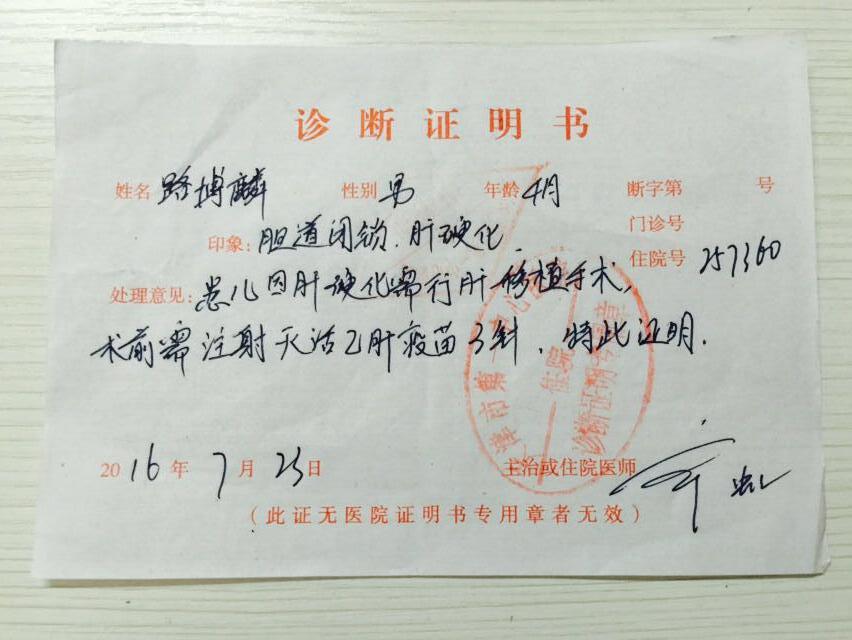 诊断证明书
姓名 路搏麟 性别 男 年龄 4月 断字第 号
门诊号
印象: 胆道闭锁. 肝硬化.
住院号 257360
处理意见: 患儿因肝硬化需行肝移植手术,
术前需注射灭活乙肝疫苗3针, 特此证明.
市第一中心
住院
诊断证明专用章
2016年7月25日 主治或住院医师
(此证无医院证明书专用章者无效)